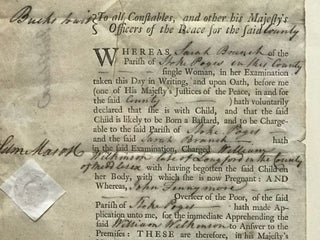 Bucks to wit
To all Constables, and other his Majesty's
Officers of the Peace for the said County
WHEREAS Sarah Branch of the
Parish of Stoke Poges in this County
single Woman, in her Examination
taken this Day in Writing, and upon Oath, before me
(one of His Majesty's Justices of the Peace, in and for
the said County) hath voluntarily
declared that she is with Child, and that the said
Child is likely to be Born a Bastard, and to be Charge-
able to the said Parish of Stoke Poges
and the said Sarah Branch hath
in the said Examination, Charged William
Wilkinson late of Langford in the County
of Middlesex with having begotten the said Child on
her Body, with which she is now Pregnant: AND
Whereas, John Fennymore
Overseer of the Poor, of the said
Parish of Stoke Poges hath made Ap-
plication unto me, for the immediate Apprehending
the said William Wilkinson to Answer to the
Premises: THESE are therefore, in his Majesty's
Mason